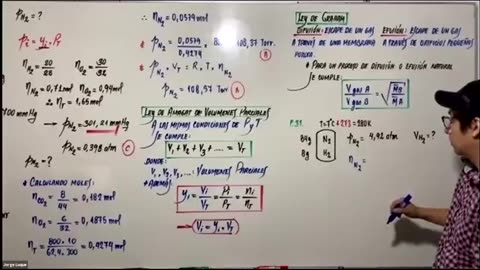 P_N2 = ?
P_i = y_i · P_T
n_N2 = 20/28
n_O2 = 30/32
n_N2 = 0,71 mol
n_O2 = 0,94 mol
∴ n_T = 1,65 mol
→ P_N2 = 301,21 mmHg
→ P_N2 = 0,398 atm
C
* CALCULANDO MOLES:
n_CO2 = 8/44 → 0,182 mol
n_O2 = 6/32 → 0,1875 mol
n_T = 800·10/62,4·300 = 0,4274 mol
∴ n_N2 = 0,0579 mol
P_N2 = 0,0579/0,4274
108,37 Torr.
A
P_N2 · V_T = R · T · n_N2
P_N2 = 108,57 Torr
A
LEY DE AMAGAT DE VOLUMENES PARCIALES
A LAS MISMAS CONDICIONES DE P y T
SE CUMPLE:
V1 + V2 + V3 + .... = V_T
DONDE:
V1, V2, V3, ...: VOLUMENES PARCIALES
* ADEMÁS:
y_i = V_i/V_T = P_i/P_T = n_i/n_T
→ V_i = y_i · V_T
LEY DE GRAHAM
DIFUSIÓN: ESCAPE DE UN GAS
A TRAVÉS DE UNA MEMBRANA
POROSA.
EFUSIÓN: ESCAPE DE UN GAS
A TRAVÉS DE ORIFICIOS PEQUEÑOS
* PARA UN PROCESO DE DIFUSIÓN O EFUSIÓN NATURAL
SE CUMPLE:
V gas A / V gas B = √(M̄_B / M̄_A)
P.31. T=7°C+273=280K
84g N2
8g H2
P_N2 = 4,92 atm
V_H2?
n_N2 =
Jorge Luque